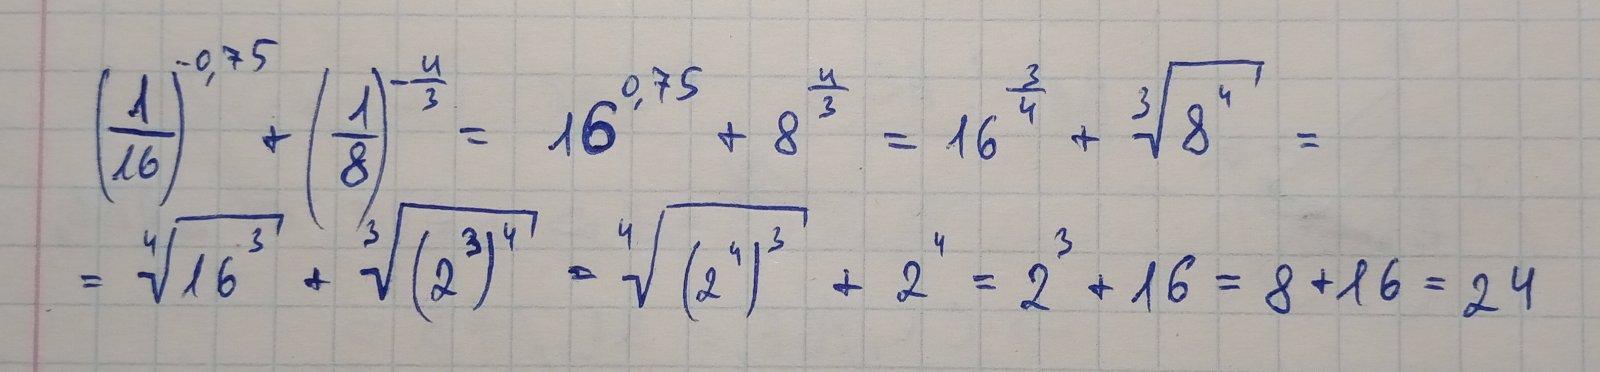 (1/16)^{-0,75} + (1/8)^{-4/3} = 16^{0,75} + 8^{4/3} = 16^{3/4} + ∛(8^4) =
= ∜(16^3) + ∛((2^3)^4) = ∜((2^4)^3) + 2^4 = 2^3 + 16 = 8 + 16 = 24